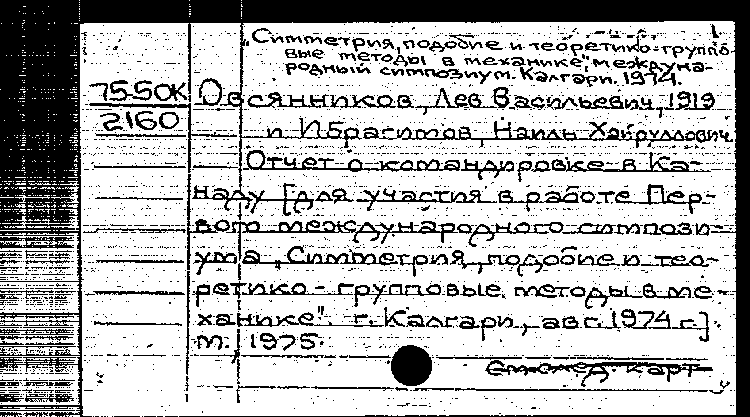 „Симметрия, подобие и теоретико-группо-
вые методы в механике", междуна-
родный симпозиум. Калгари. 1974.
75-50К Овсянников, Лев Васильевич, 1919
2160 и Ибрагимов, Наиль Хайруллович
Отчет о командировке в Ка-
наду [для участия в работе Пер-
вого международного симпози-
ума „Симметрия, подобие и тео-
ретико-групповые методы в ме-
ханике". г. Калгари, авг. 1974 г.].
М. 1975.
карт